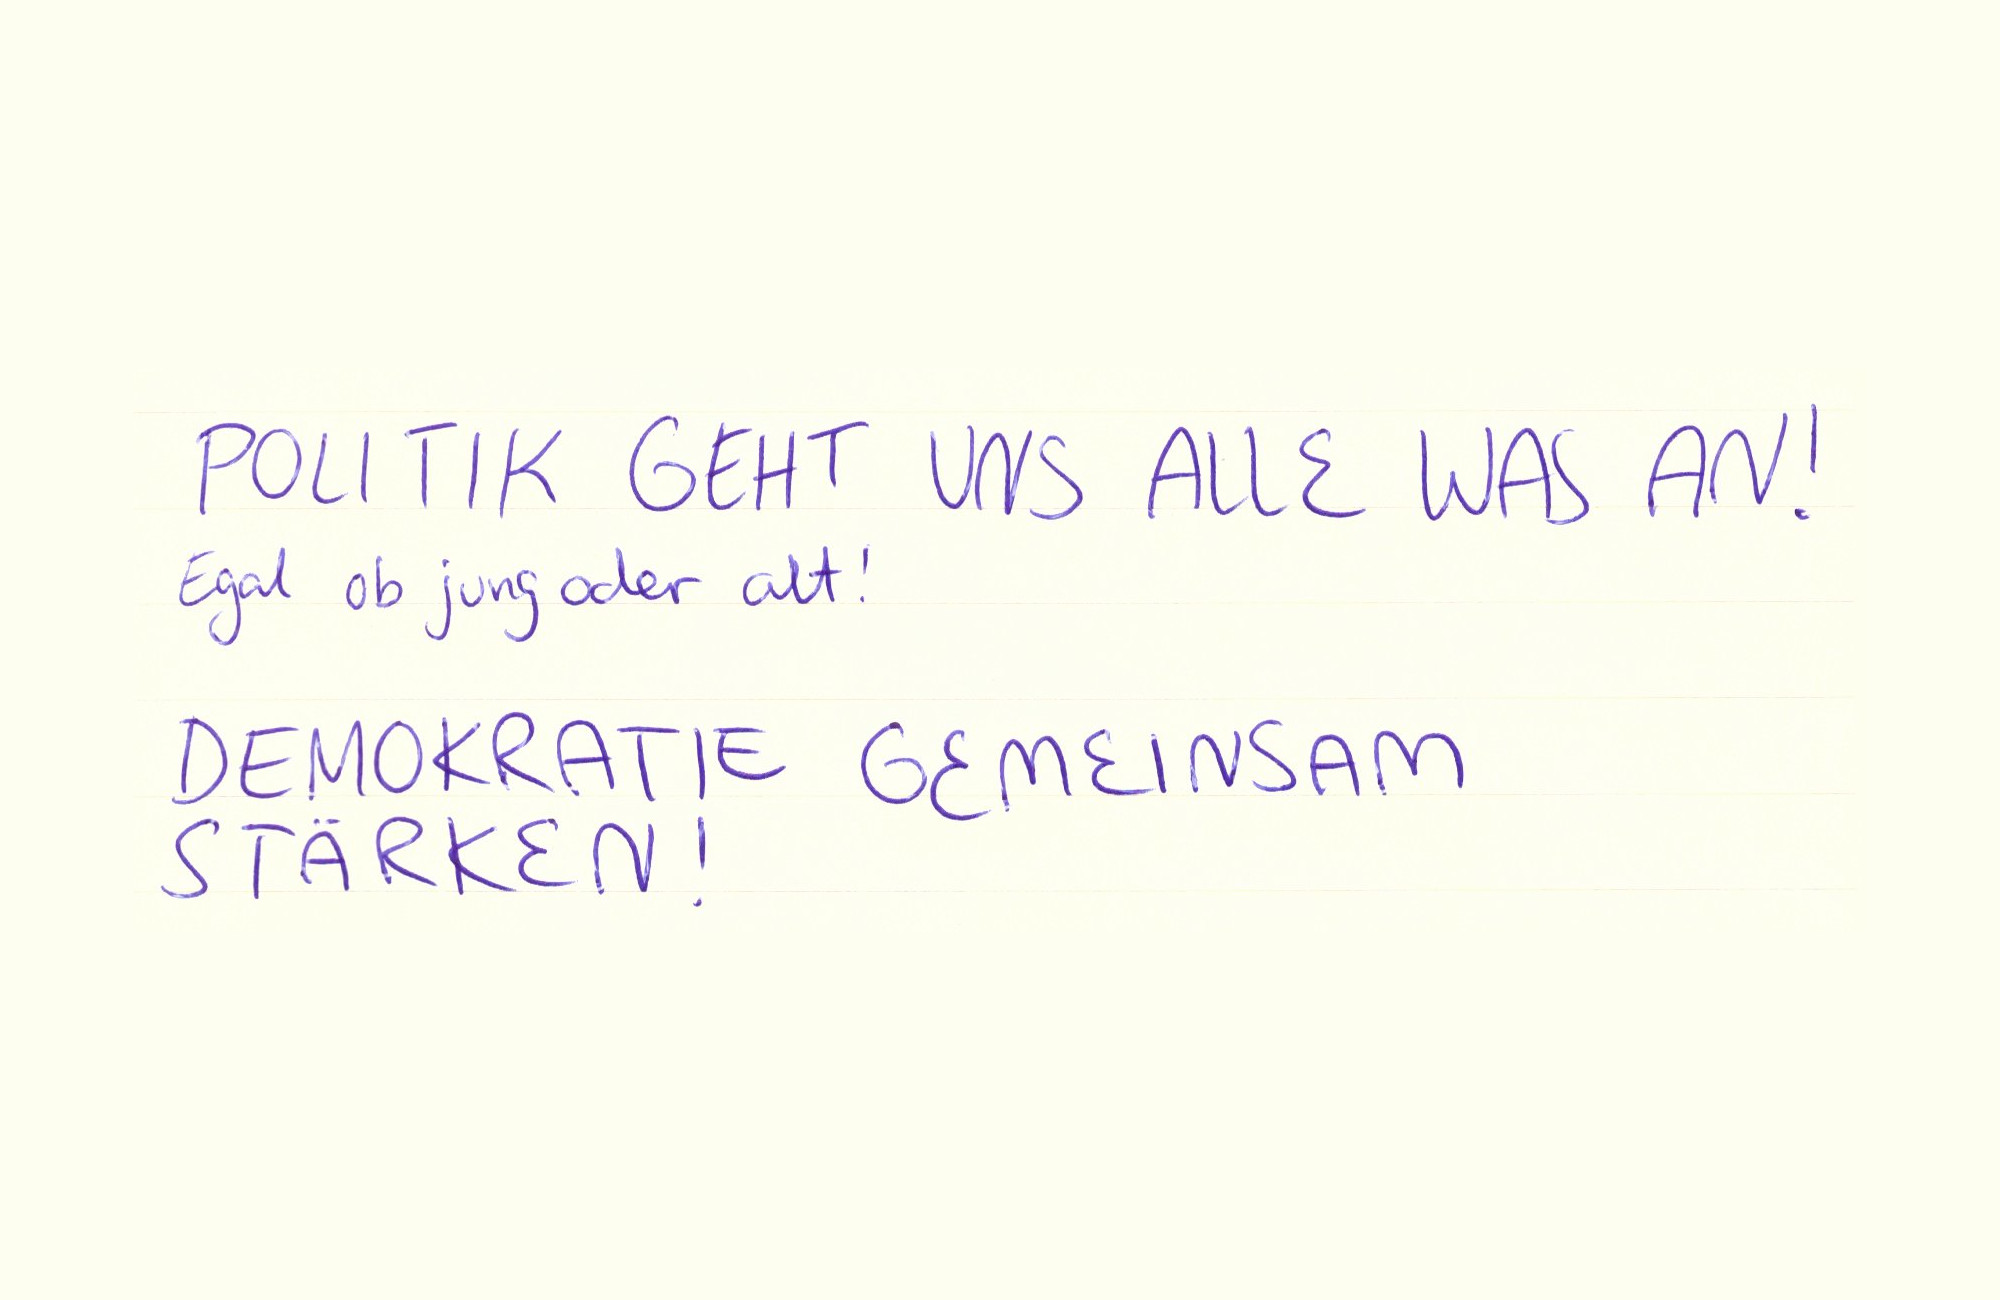 POLITIK GEHT UNS ALLE WAS AN!
Egal ob jung oder alt!
DEMOKRATIE GEMEINSAM
STÄRKEN!